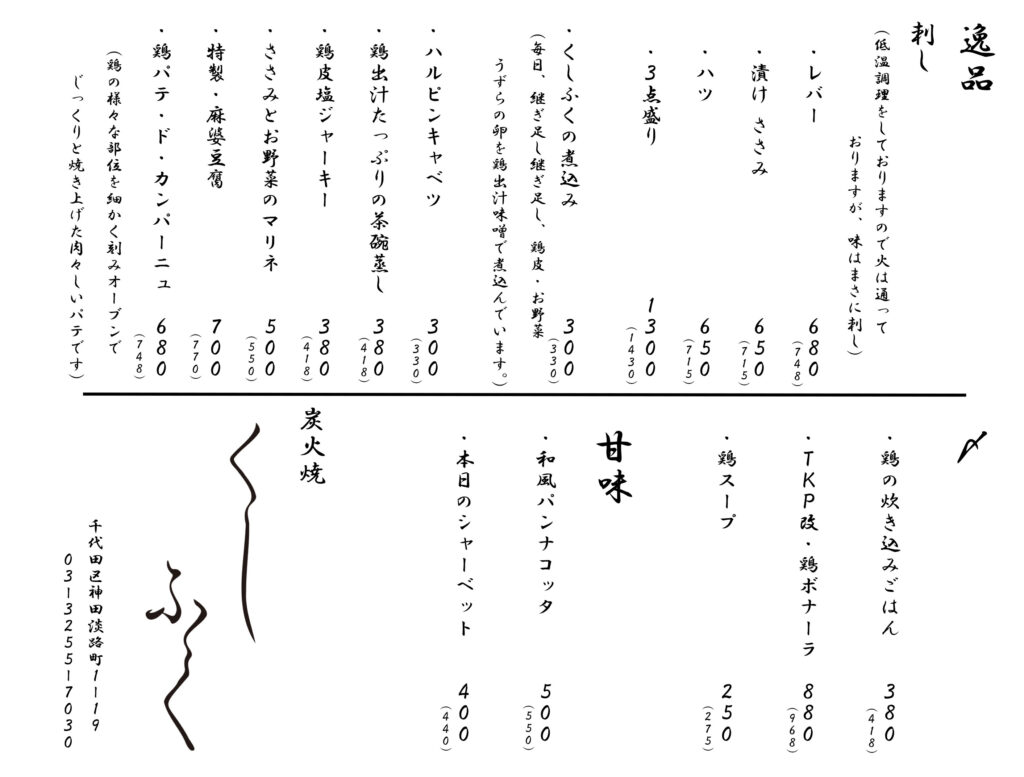 逸品
刺し
(低温調理をしておりますので火は通って
おりますが、味はまさに刺し)
・レバー 680 (748)
・漬け ささみ 650 (715)
・ハツ 650 (715)
・3点盛り 1300 (1430)
・くしふくの煮込み 300 (330)
(毎日、継ぎ足し継ぎ足し、鶏皮・お野菜
うずらの卵を鶏出汁味噌で煮込んでいます。)
・ハルピンキャベツ 300 (330)
・鶏出汁たっぷりの茶碗蒸し 380 (418)
・鶏皮塩ジャーキー 380 (418)
・ささみとお野菜のマリネ 500 (550)
・特製・麻婆豆腐 700 (770)
・鶏パテ・ド・カンパーニュ 680 (748)
(鶏の様々な部位を細かく刻みオーブンで
じっくりと焼き上げた肉々しいパテです)
〆
・鶏の炊き込みごはん 380 (418)
・TKP改・鶏ボナーラ 880 (968)
・鶏スープ 250 (275)
甘味
・和風パンナコッタ 500 (550)
・本日のシャーベット 400 (440)
炭火焼
くしふく
千代田区神田淡路町1-19
03-3255-7030